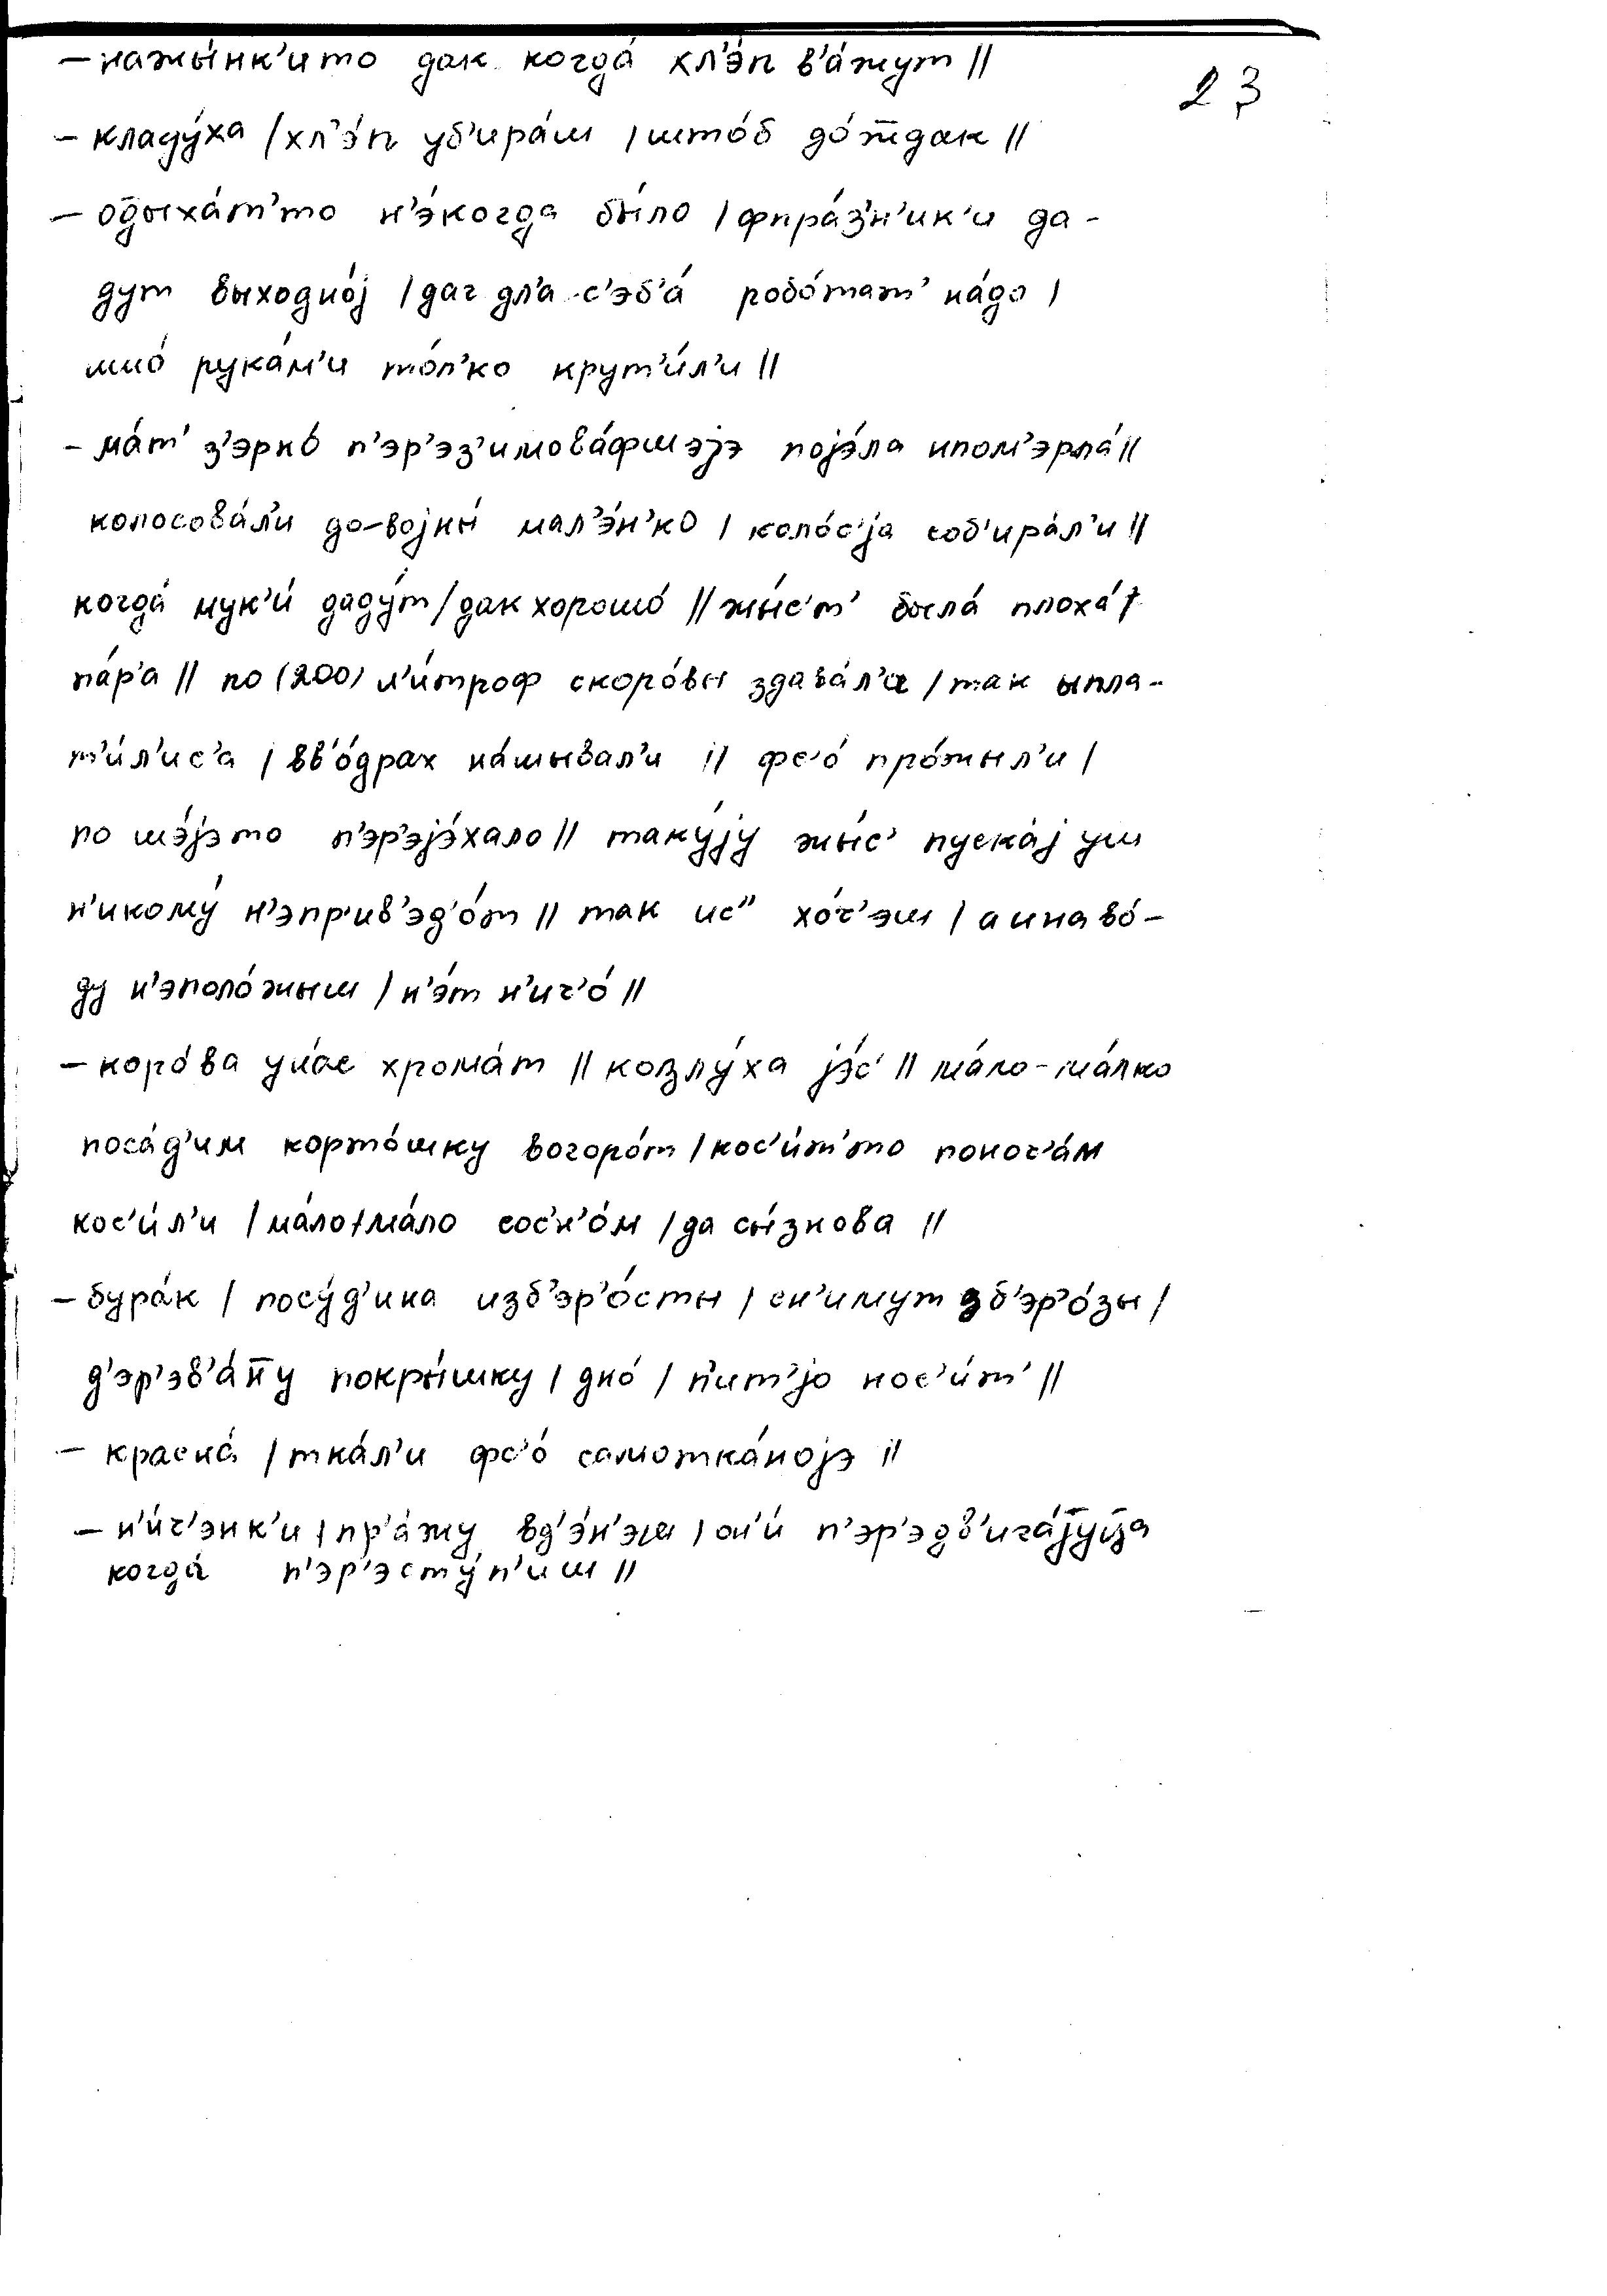 – нажы́нк'ито дак когда́ хл'э́п в'а́жут ||
23
– кладу́ха | хл'э́п уб'ира́ш | што́б до́ж̅дак ||
– од̅ыха́т'то н'э́когда бы́ло | фпра́з'н'ик'и да-
дут выходно́j | даг дл'а с'эб'а́ робо́тат' на́до |
шшо́ рука́м'и то́л'ко крут'и́л'и ||
– ма́т' з'эрно́ п'эр'эз'имова́фшэjэ поjэ́ла ипом'эрла́ ||
колосова́л'и до-воjны́ мал'э́н'ко | коло́с'jа соб'ира́л'и ||
когда́ мук'и́ даду́т | дак хорошо́ || жы́с'т' была́ плоха́ т
па́р'а || по (200) л'и́троф скоро́вы здава́л'и | так ыпла-
т'и́л'ис'а | вв'о́драх на́шывал'и || фс'о́ про́жыл'и |
по шэ́jэто п'эр'эjэ́хало || таку́jу жы́с' пуска́j уш
н'икому́ н'эпр'ив'эд'о́т || так ис" хо́ч'эш | а инаво́-
ду н'эполо́жыш | н'э́т н'ич'о́ ||
– коро́ва уна́с хрома́т || козлу́ха jэ́с' || ма́ло-ма́лко
поса́д'им корто́шку вогоро́т | кос'и́т'то поноч'а́м
кос'и́л'и | ма́ло ма́ло сос'н'о́м | да сы́знова ||
– бура́к | посу́д'ина изб'эр'о́сты | сн'имут зб'эр'о́зы |
д'эр'эв'а́н̅у покры́шку | дно́ | п'ит'jо нос'и́т' ||
– красна́ | тка́л'и фс'о́ самотка́ноjэ ||
– н'и́ч'энк'и | пр'а́жу вд'э́н'эш | он'и́ п'эр'эдв'ига́jуц̅а
когда́ п'эр'эсту́п'иш ||